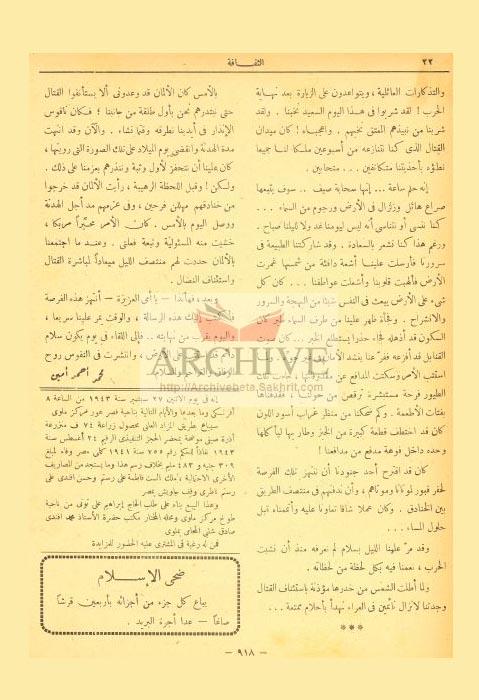 ٢٢
الثقافة
والتذكارات العائلية ، ويتواعدون على الزيارة بعد نهاية
الحرب ! لقد شربوا فى هذا اليوم السعيد نخبنا . ولقد
شربنا من نبيذهم المعتق نخبهم . واعجباه ! كان ميدان
القتال الذى كنا نتنازعه من أسبوعين ملكا لنا جميعا
نطؤه بأحذيتنا متكاتفين ... متحابين .
إنه حلم ساعة ... إنها سحابة صيف .. سوف يتبعها
صراع هائل وزلزال فى الأرض ورجوم من السماء ...
كنا ننسى أو نتناسى أنه ليس ليومنا غد ولا لليلنا صباح .
ورغم هذا كنا نشعر بالسعادة . وقد شاركتنا الطبيعة فى
سرورنا فأرسلت علينا أشعة دافئة من شمسها غمرت
الأرض فألهبت قلوبنا وأشعلت عواطفنا ... كان كل
شىء على الأرض يبعث فى النفس شيئا من البهجة والسرور
والانشراح . وفجأة ظهر علينا من طرف السماء طير كان
السكون قد أذهله فجاء حذرا يستطلع الخبر ... كان صوت
القنابل قد أفزعه ففر عنا ينشد الأمان
استقب الأمر وسكنت المدافع عن مقذوفاتها ، جاءت تلك
الطيور فرحة مستبشرة ترقص من حولنا ، فقذفناها
بفتات الأطعمة . وكم ضحكنا من منظر غراب أسود اللون
كان قد اختطف قطعة كبيرة من الخبز وطار بها ليأكلها
وحده داخل فوهة مدفع من مدافعنا !
كان قد اقترح أحد جنودنا أن ننتهز تلك الفرصة
لحفر قبور لموتانا وموتاهم ، وأن ندفنهم فى منتصف الطريق
بين الخنادق . وكان عملا شاقا تعاونا عليه وأتممناه قبل
حلول المساء ...
وقد مر علينا الليل بسلام لم نعرفه منذ أن نشبت
الحرب ، نعمنا فيه بكل لحظة من لحظاته .
ولما أطلت الشمس من خدرها مؤذنة باستئناف القتال
وجدتنا لا نزال نائمين فى العراء نهدأ بأحلام ممتعة ...
***
بالأمس كان الألمان قد وعدونى ألا يستأنفوا القتال
حتى ننذرهم نحن بأول طلقة من جانبنا ؛ فكان ناقوس
الإنذار فى أيدينا نطرقه وقتما نشاء . والآن وقد انتهت
مدة الهدنة وانقضى يوم الميلاد على تلك الصورة التى رويتها ،
كان علينا أن نتحفز لأول وثبة وننذرهم بعزمنا على ذلك .
ولكن ! وقبل اللحظة الرهيبة ، رأيت الألمان قد خرجوا
من خنادقهم مهللين فرحين ، وفى عزمهم مد أجل الهدنة
ووصل اليوم بالأمس . كان الأمر محيرا مربكا ،
خشيت منه المسئولية وتبعة فعلتى . وعند ما اجتمعنا
بالألمان حددت لهم منتصف الليل ميعادا لمباشرة القتال
واستئناف النضال .
وبعد ، فهأنذا — يا أمى العزيزة — أنتهز هذه الفرصة
فأكتب إليك هذه الرسالة ، والوقت يمر علينا سريعا ،
واليوم يقرب من نهايته .. فإلى اللقاء فى يوم يكون سلام
على الأرض ، وانتشرت فى النفوس روح
محمد أحمد أمين
ARCHIVE
http://Archivebeta.Sakhrit.com
إنه فى يوم الاثنين ٢٧ سبتمبر سنة ١٩٤٣ من الساعة ٨
أفرنكى وما بعدها والأيام التالية بناحية قصر هور مركز ملوى
سيباع بطريق المزاد العلنى محصول زراعة ٧٤ ف منزرعة
أذرة صيفى موضحة بمحضر الحجز التنفيذى الرقيم ٢٤ أغسطس سنة
١٩٤٣ نفاذا للحكم رقم ٧٥٥ سنة ١٩٤١ كلى مصر وفاء لمبلغ
٣٠٩ جنيه و ٤٨٣ مليم بخلاف رسم هذا وما يستجد من المصاريف
الأخرى
رستم ناظرى وقف جاويش بمصر
وهذا البيع بناء على طلب الحاج إبراهيم على تونى من ناحية
طوخ مركز ملوى ومحله المختار مكتب حضرة الأستاذ محمد افندى
صادق شلبى المحامى بملوى
فمن له رغبة فى المشترى عليه الحضور للمزايدة
ضحى الإسلام
يباع كل جزء من أجزائه بأربعين قرشا
صاغا — عدا أجرة البريد .
— ٩١٨ —